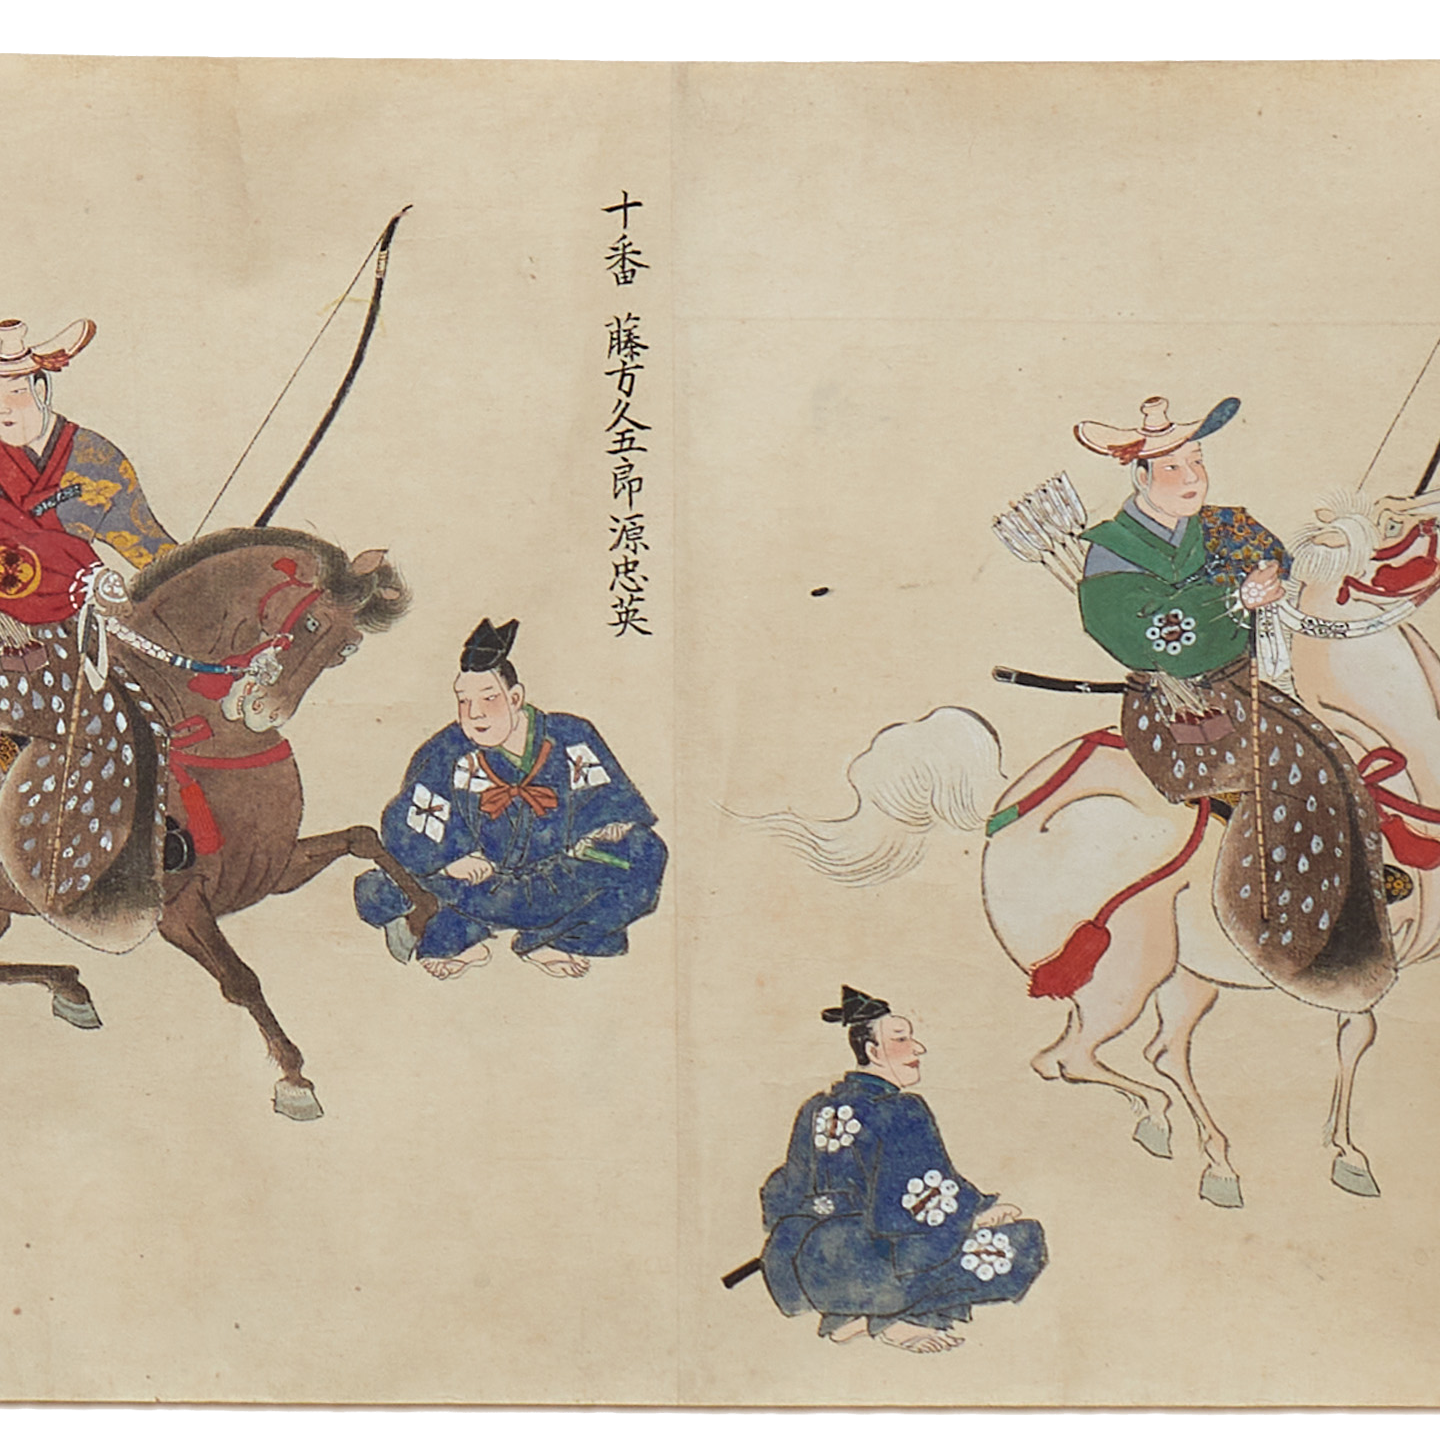 十番 藤方久五郎源忠英